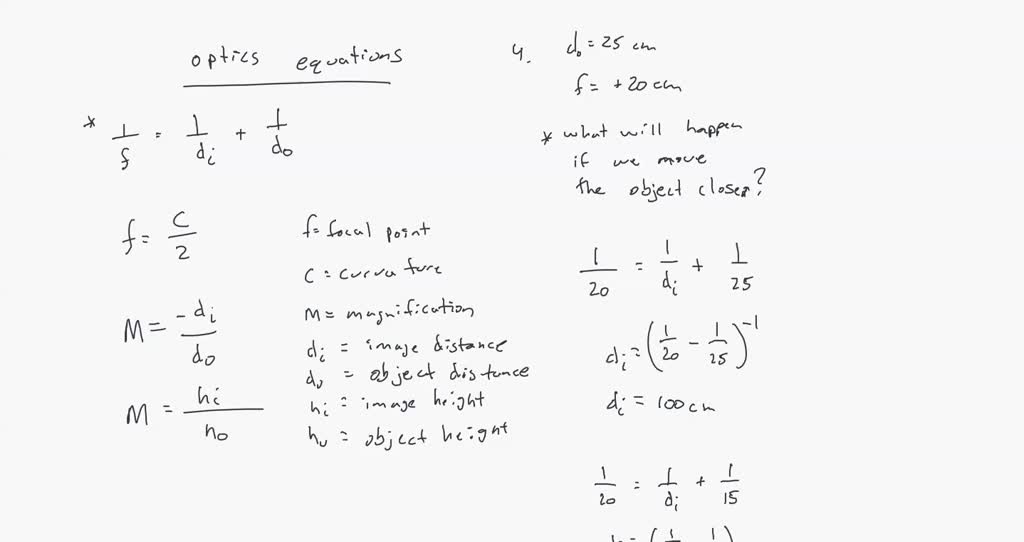 optics equations
* 1/f = 1/di + 1/do
f = C/2
M = -di/do
M = hi/ho
f = focal point
C = curvature
M = magnification
di = image distance
do = object distance
hi = image height
ho = object height
4. do = 25 cm
f = +20 cm
* what will happen
if we move
the object closer?
1/20 = 1/di + 1/25
di = (1/20 - 1/25)^-1
di = 100 cm
1/20 = 1/di + 1/15